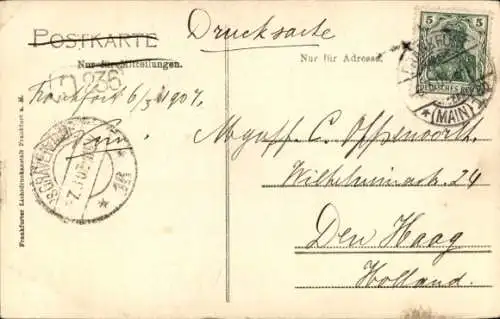 POSTKARTE
Drucksache
Nur für Mitteilungen.
Nur für Adresse.
5
5
DEUTSCHES REICH
(MAIN)
Frankfurt 6/3 1907.
C. Offenoorth
Wilhelminastr. 24
Den Haag
Holland.
Frankfurter Lichtdruckanstalt Frankfurt a. M.